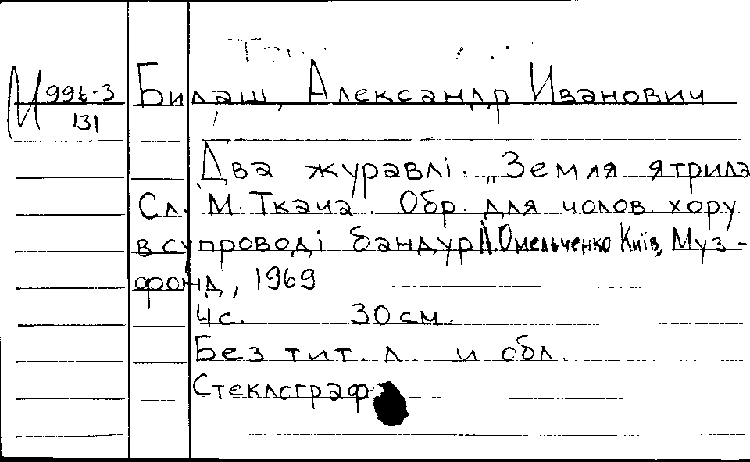 М 996-3
131
Билаш, Александр Иванович
Два журавлі. „Земля ятрила
Сл. М. Ткача. Обр. для чолов. хору
в супроводі бандур А. Омельченко Київ, Муз-
фонд, 1969
4 с. 30 см.
Без тит. л. и обл.
Стеклограф